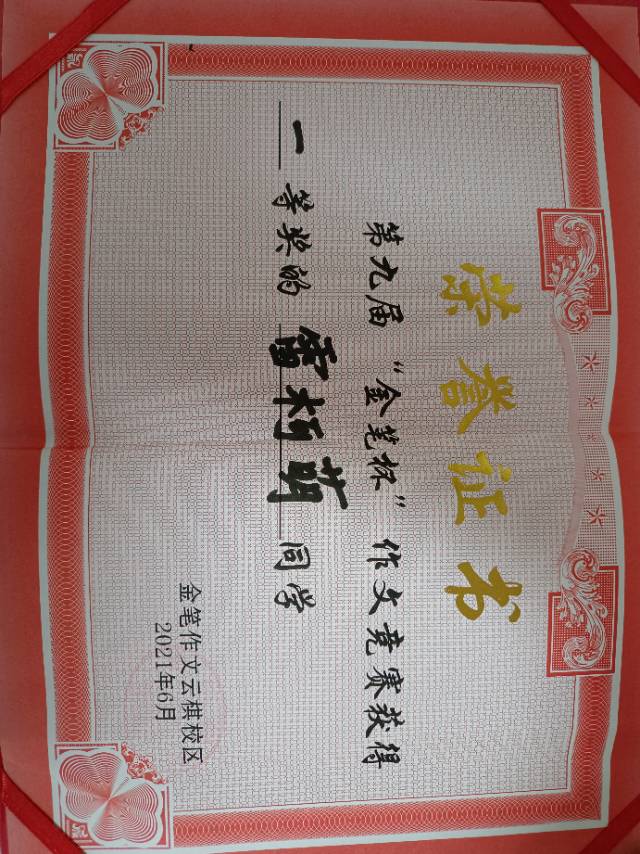 荣誉证书
第九届“金笔杯”作文竞赛获得
一等奖的雷柯萌同学
金笔作文云棋校区
2021年6月